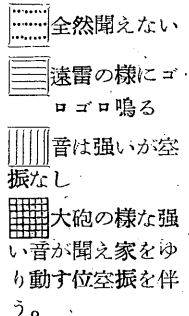 全然聞えない
遠雷の様にゴ
ロゴロ鳴る
音は强いが空
振なし
大砲の様な强
い音が聞え家をゆ
り動す位空振を伴
う。